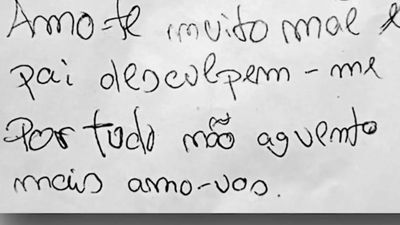 Amo-te muito mãe e
pai desculpem-me
Por tudo não aguento
mais amo-vos.